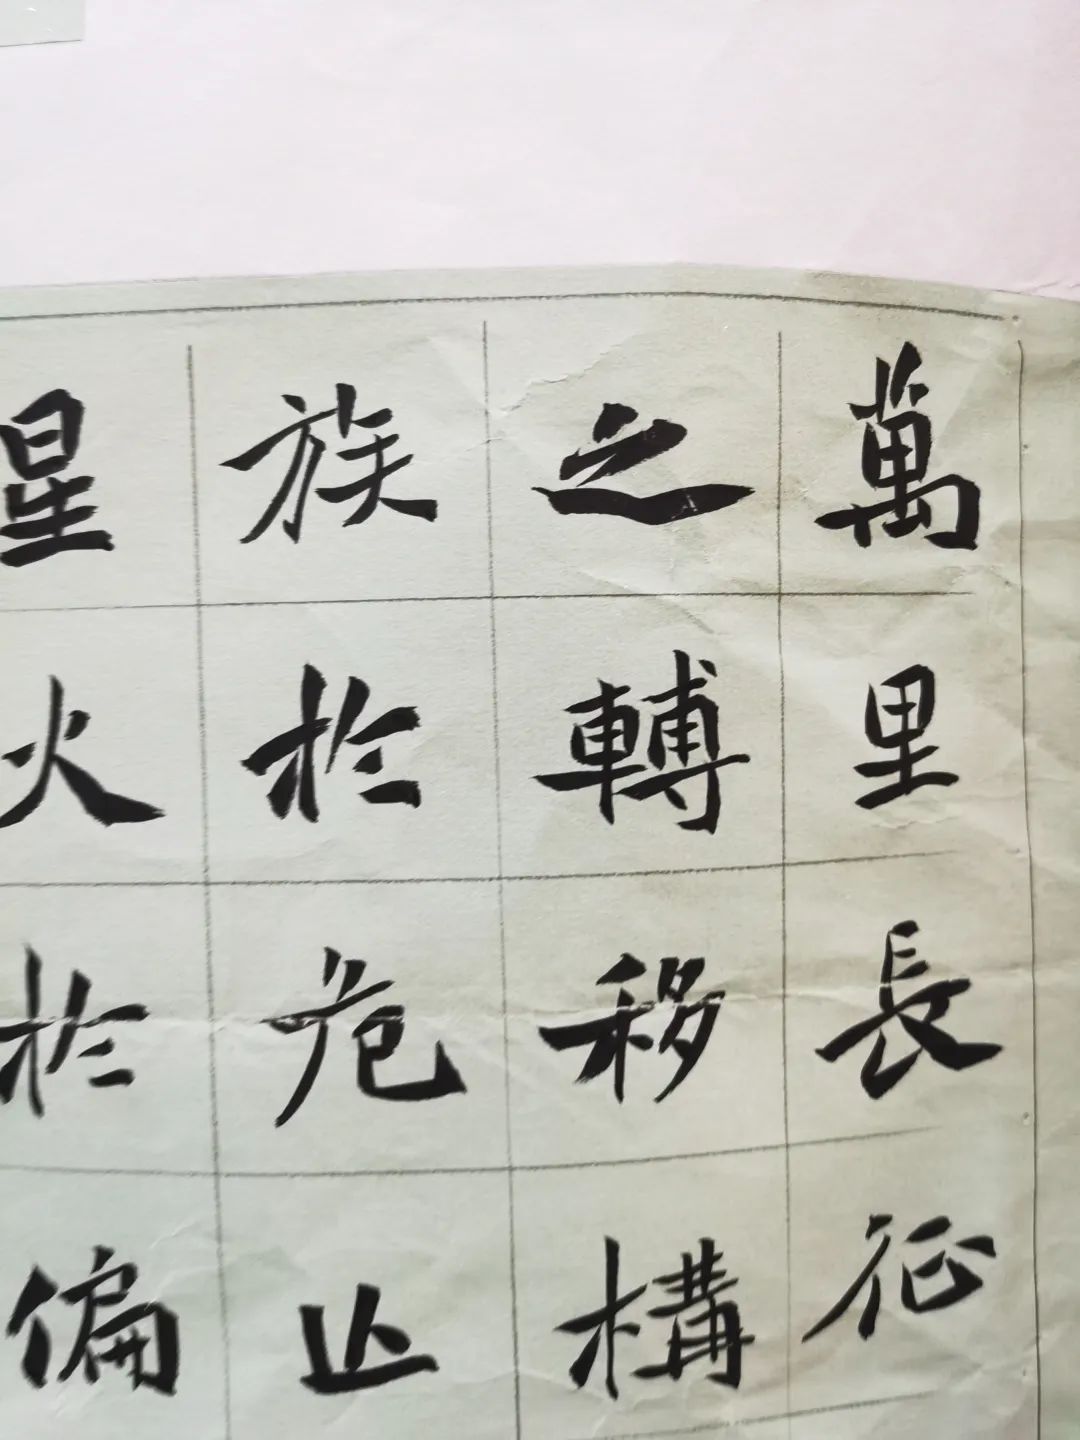 萬里長征
之轉移構
族於危亾
星火於偏